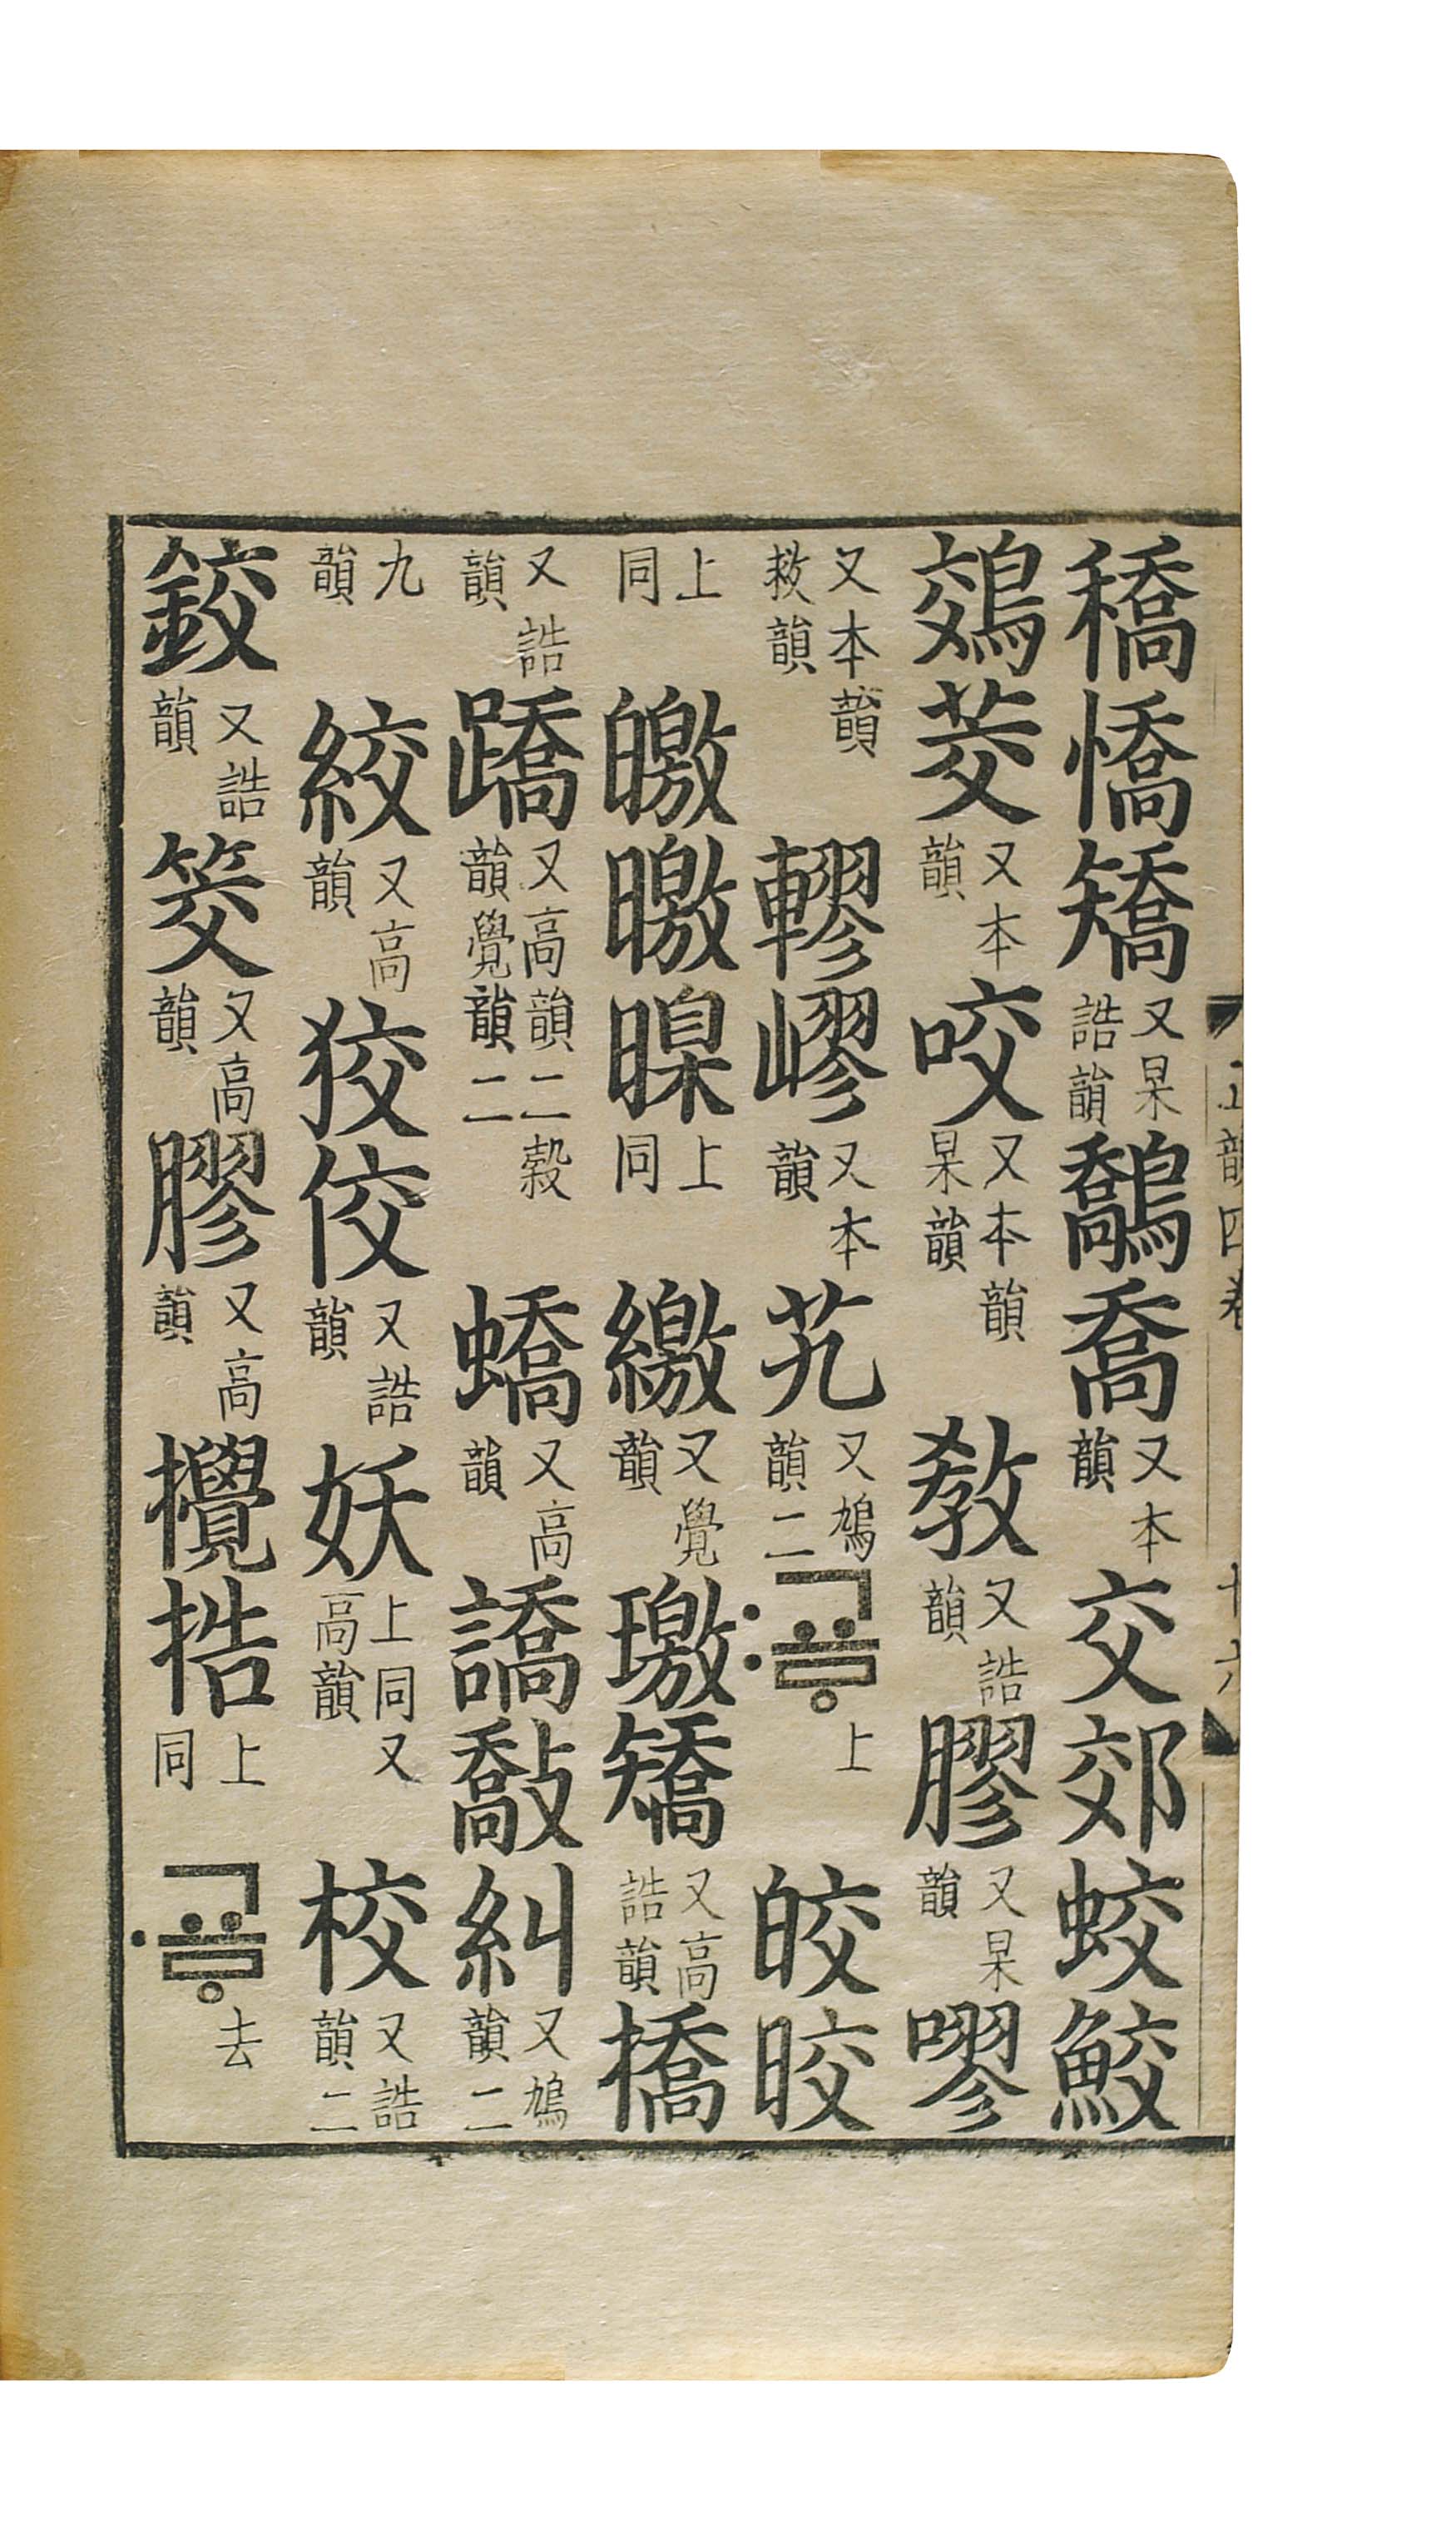 穚憍矯又杲誥韻鷮喬又本韻交郊蛟鮫
鵁茭又本韻咬又本韻杲韻教又誥韻膠又杲韻嘐
又本韻救韻轇嵺又本韻艽又鳩韻二上皎晈
上同皦曒㬎上同繳又覺韻璬矯又高誥韻撟
又誥韻蹻又高韻二穀韻覺韻二蟜又高韻譑敿糾又鳩韻二
九韻絞又高韻狡佼又誥韻妖上同又高韻校又誥韻二
鉸又誥韻筊又高韻膠又高韻攪捁上同去